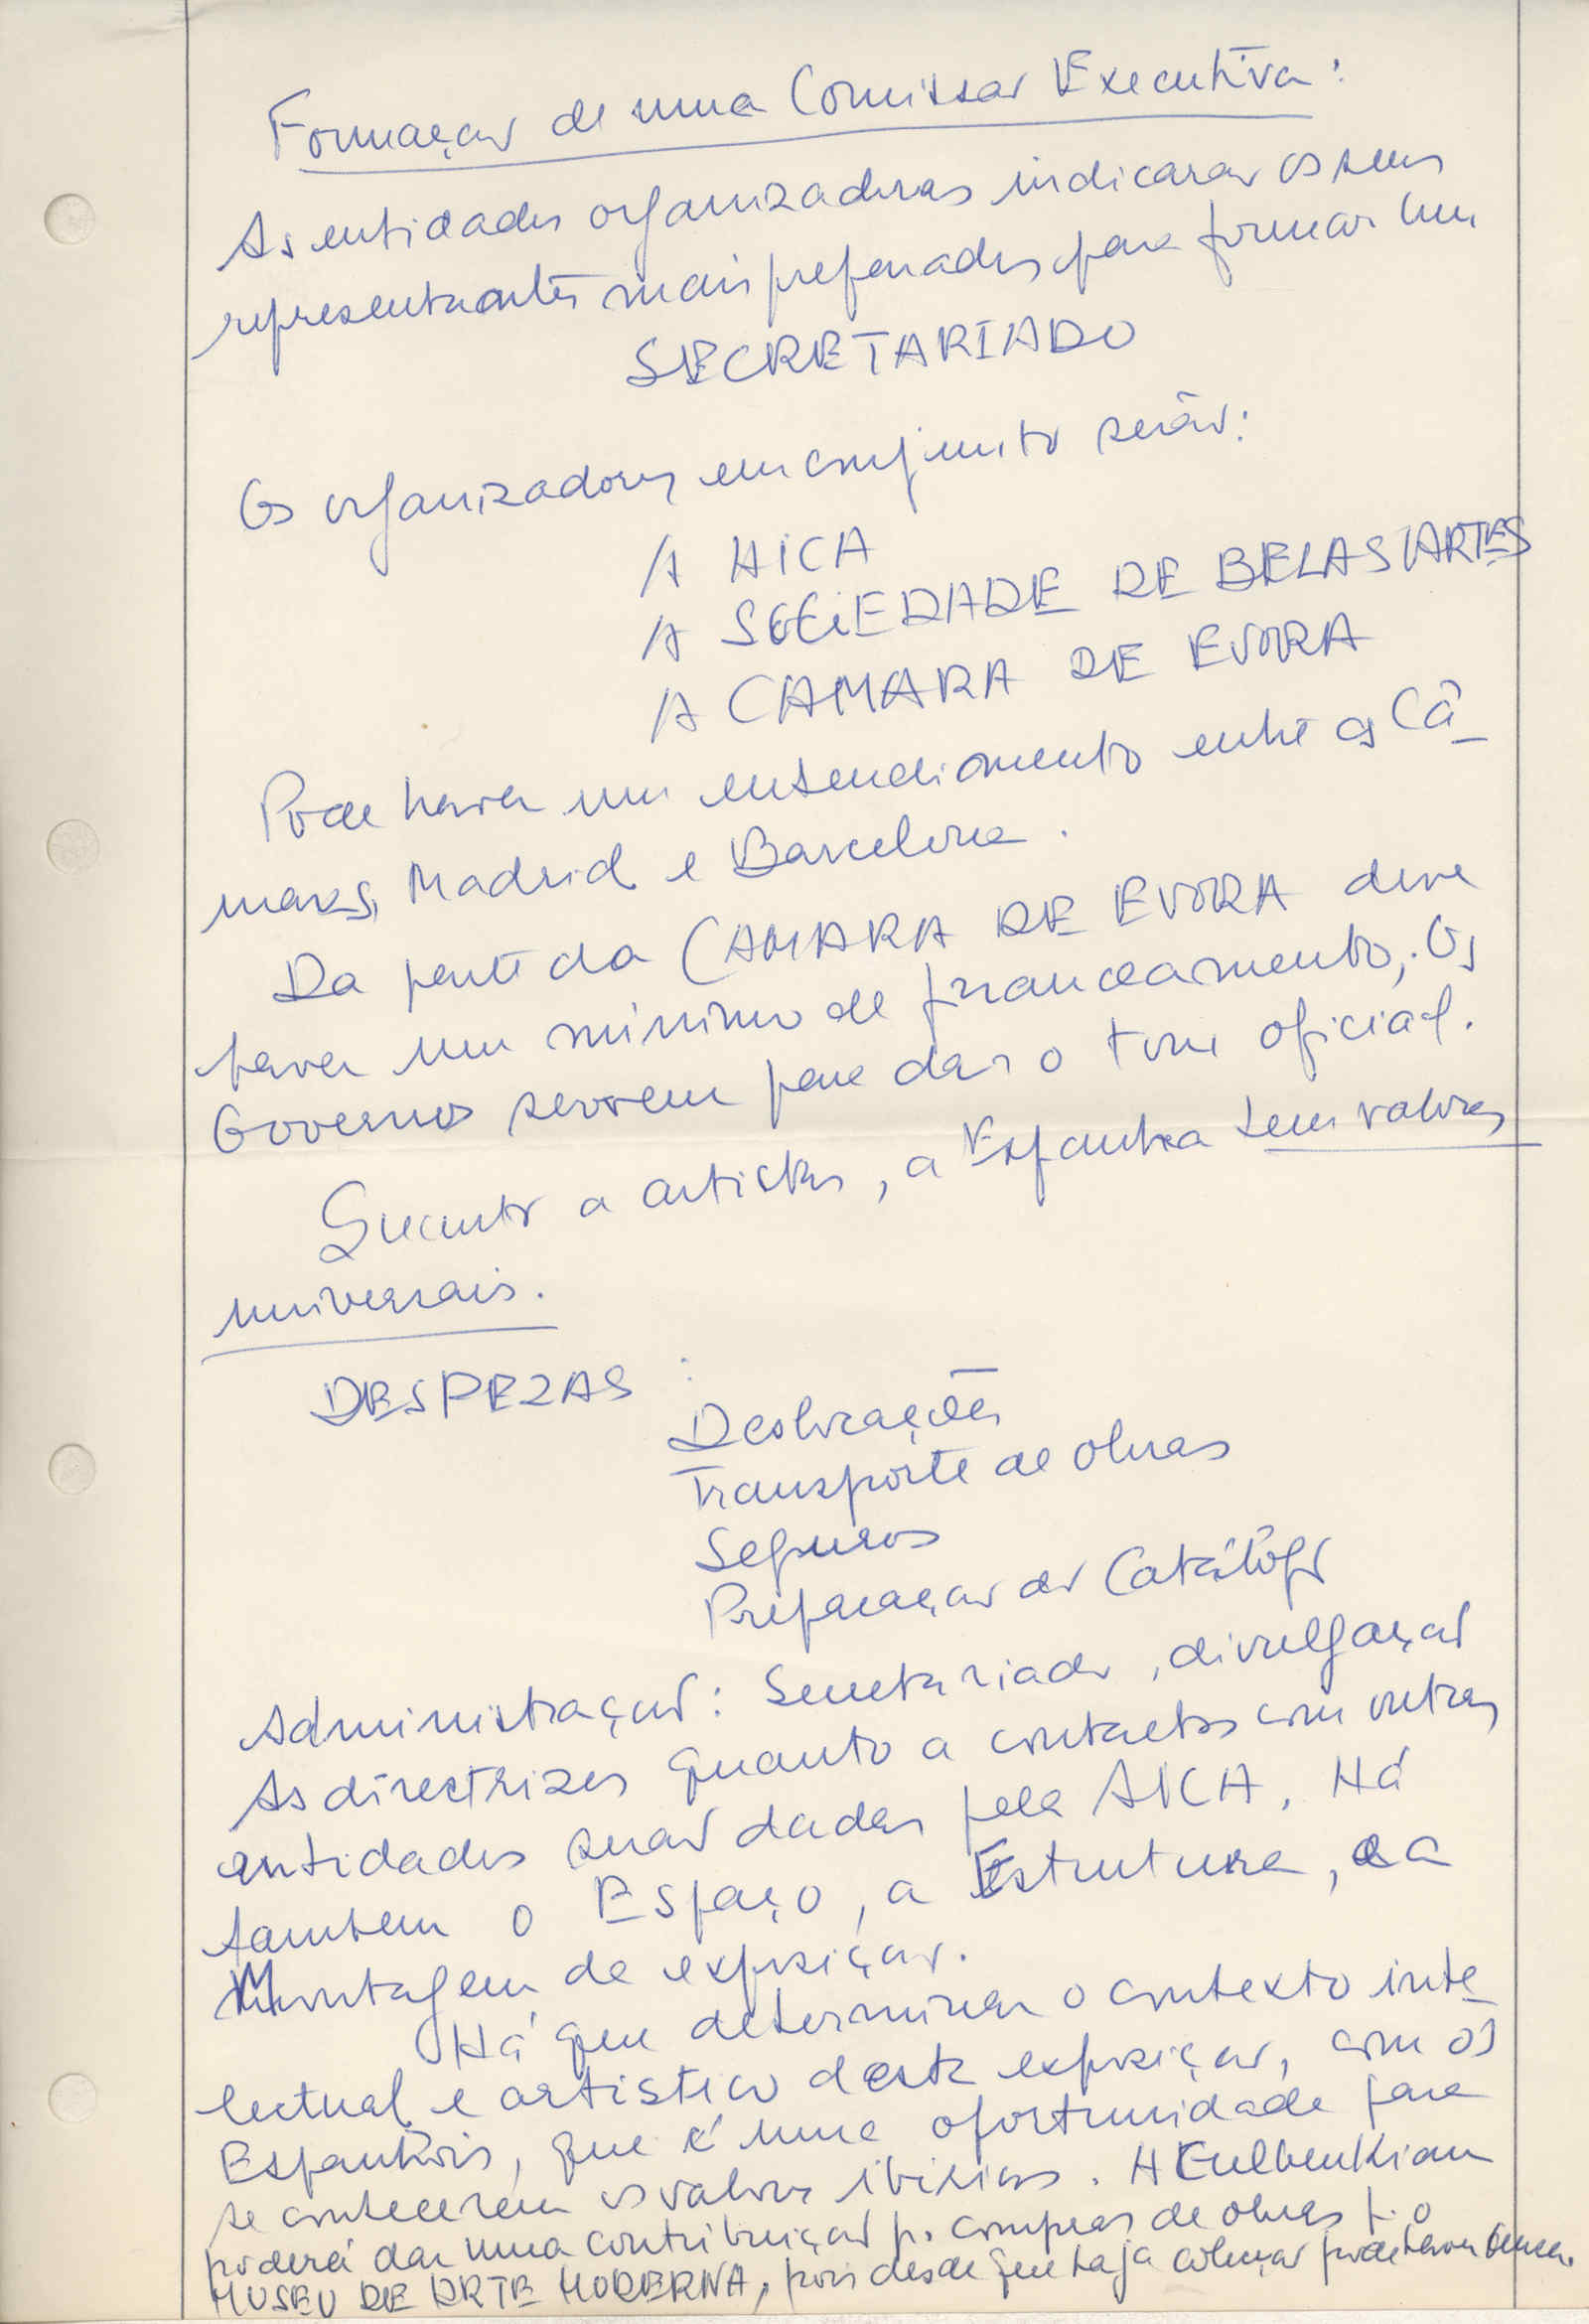 Formação de uma Comissão Executiva:
As entidades organizadoras indicarão os seus
representantes mais preparados para formar um
SECRETARIADO
Os organizadores em conjunto serão:
A AICA
A SOCIEDADE DE BELAS ARTES
A CAMARA DE EVORA
Pode haver um entendimento entre as Câ-
maras, Madrid e Barcelona.
Da parte da CAMARA DE EVORA deve
haver um minimo de financeamento,. Os
Governos servem para dar o tom oficial.
Quanto a artistas, a Espanha tem valores
universais.
DESPEZAS :
Deslocações
Transporte de obras
Seguros
Preparação do Catálogo
Administração: Secretariado, divulgação
As directrizes quanto a contactos com outras
entidades serão dadas pela AICA. Há
tambem o Espaço, a Estrutura, e a
Montagem da exposição.
Há que determinar o contexto inte-
lectual e artistico desta exposição, com os
Espanhois, que é uma oportunidade para
se conhecerem os valores ibéricos. A Gulbenkian
poderá dar uma contribuição p. compras de obras p. o
MUSEU DE ARTE MODERNA, pois desde que haja pode haver